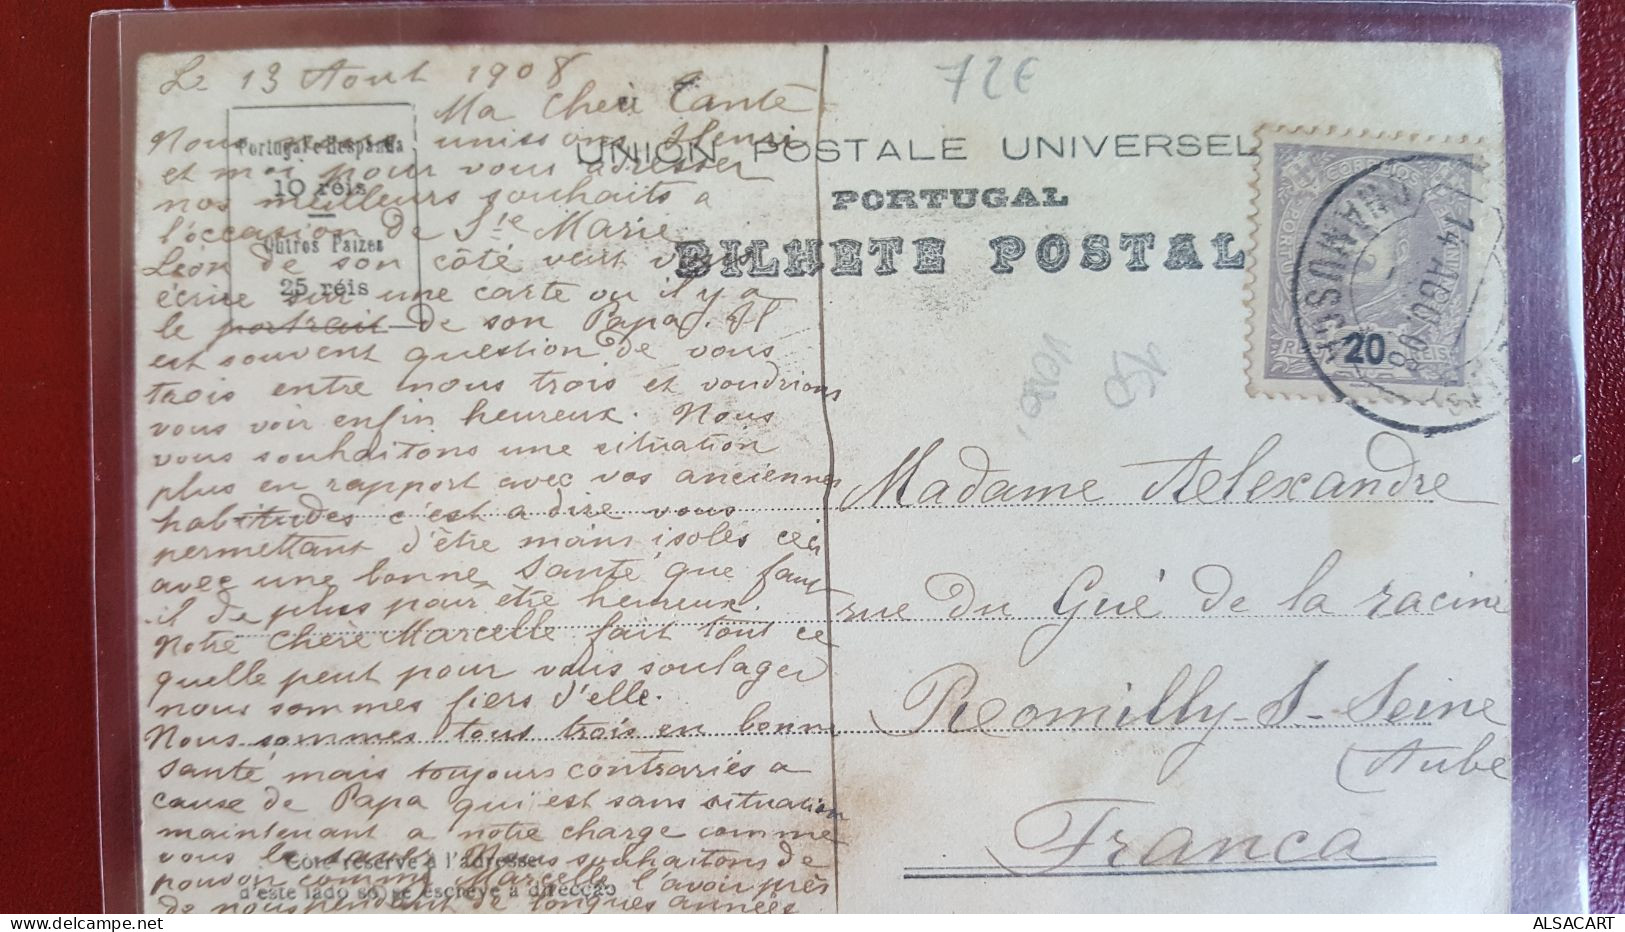 Le 13 Aout 1908
Ma chere Tante
Nous nous unissons Henri
et moi pour vous adresser
nos meilleurs souhaits a
l'occasion de Ste Marie
Léon de son côté veut vous
écrire sur une carte ou il y a
le portrait de son Papa. Il
est souvent question de vous
trois entre nous trois et voudrions
vous voir enfin heureux. Nous
vous souhaitons une situation
plus en rapport avec vos anciennes
habitudes c'est a dire vous
permettant d'être moins isolés ceci
avec une bonne santé que faut
il de plus pour être heureux.
Notre chère Marcelle fait tout ce
qu'elle peut pour vous soulager
nous sommes fiers d'elle.
Nous sommes tous trois en bonne
santé mais toujours contrariés a
cause de Papa qui est sans situation
maintenant a notre charge comme
vous le savez Nous souhaitons de
pouvoir comme Marcelle l'avoir près
de nous pendant de longues années
Portugal e Hespanha
10 réis
Outros Paizes
25 réis
Côté réservé à l'adresse
d'este lado só se escreve a direcção
72€
UNION POSTALE UNIVERSEL
PORTUGAL
BILHETE POSTAL
CORREIOS
PORTUGAL
20
REIS
14 AGOU. 08
150
Madame Alexandre
rue du Gué de la racine
Romilly-S-Seine
(Aube
Franca
ALSACART